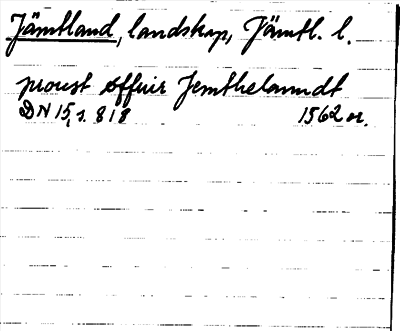 Jämtland, landskap, Jämtl. l.
proust offuir Jemthelanndt
DN 15, s. 818 1562 or.